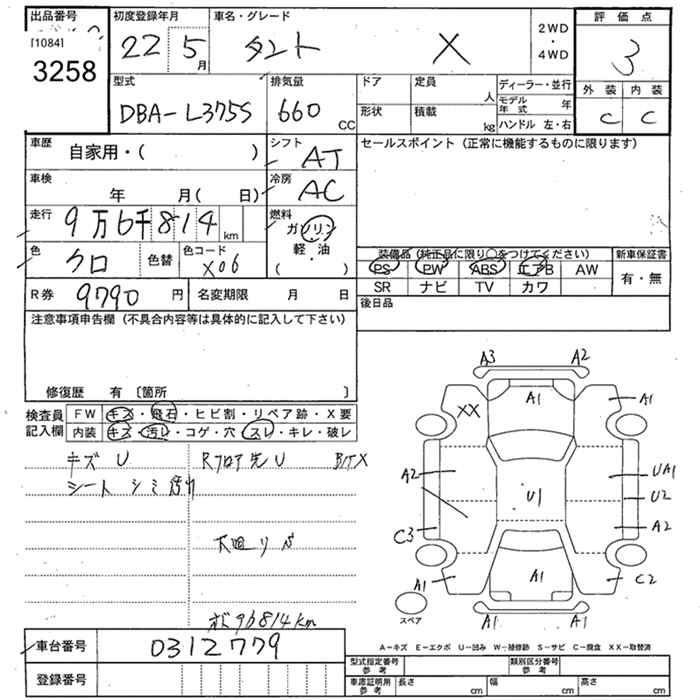 出品番号 初度登録年月 車名・グレード 2WD ・ 4WD 評価点
[1084]
3258 22 5月 タント X 3
型式 排気量 ドア 定員 人 ディーラー・並行 外装 内装
DBA-L375S 660 CC 形状 積載 kg モデル年式 年 C C
ハンドル 左・右
車歴 自家用・( ) シフト AT セールスポイント(正常に機能するものに限ります)
車検 年 月( 日) 冷房 AC
走行 9万6千814 km 燃料 ガソリン
軽・油
( )
色 クロ 色替 色コード X06 装備品(純正品に限り○をつけてください) 新車保証書
PS PW ABS エアB AW 有・無
R券 9790 円 名変期限 月 日 SR ナビ TV カワ
注意事項申告欄(不具合内容等は具体的に記入して下さい) 後日品
修復歴 有 〔箇所 〕
検査員記入欄 FW キズ・飛石・ヒビ割・リペア跡・X要
内装 キズ・汚レ・コゲ・穴・スレ・キレ・破レ
キズ U Rフロア先U
シート シミ 汚れ
96814km
A3 A2
XX A1 A1
A2 U1 UA1
U2
C3 A2
A1 A1 C2
スペア A1 A1
車台番号 0312779 A-キズ E-エクボ U-凹み W-補修跡 S-サビ C-腐食 XX-取替済
登録番号 型式指定番号 参考 類別区分番号 参考
車庫証明用 参考 長さ cm 幅 cm 高さ cm